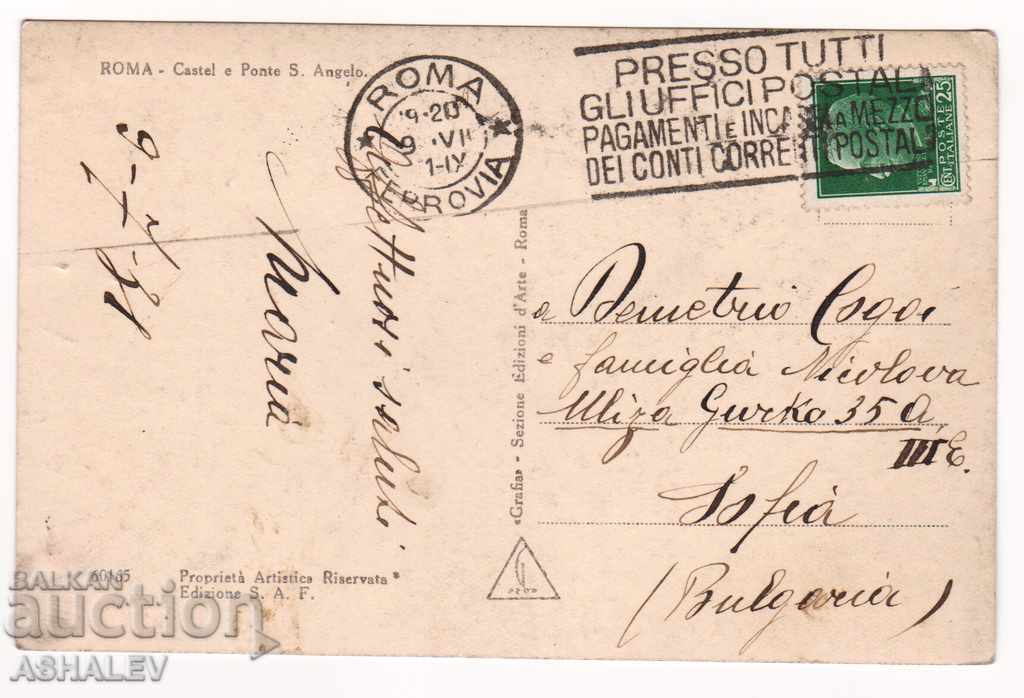 ROMA - Castel e Ponte S. Angelo.
ROMA
19·20
9 ·VII
1-IX
FERROVIA
PRESSO TUTTI
GLI UFFICI POSTALI
PAGAMENTI E INCASSI A MEZZO
DEI CONTI CORRENTI POSTALI
POSTE ITALIANE
CENT. 25
9-7-31
Affettuosi saluti
Maria
a Demetrio
e famiglia Nicolova
Uliza Gurko 35 A
III E.
Sofia
(Bulgaria)
«Grafia» - Sezione Edizioni d'Arte - Roma
60165
Proprietà Artistica Riservata
Edizione S. A. F.
BALKAN
auction
ASHALEV